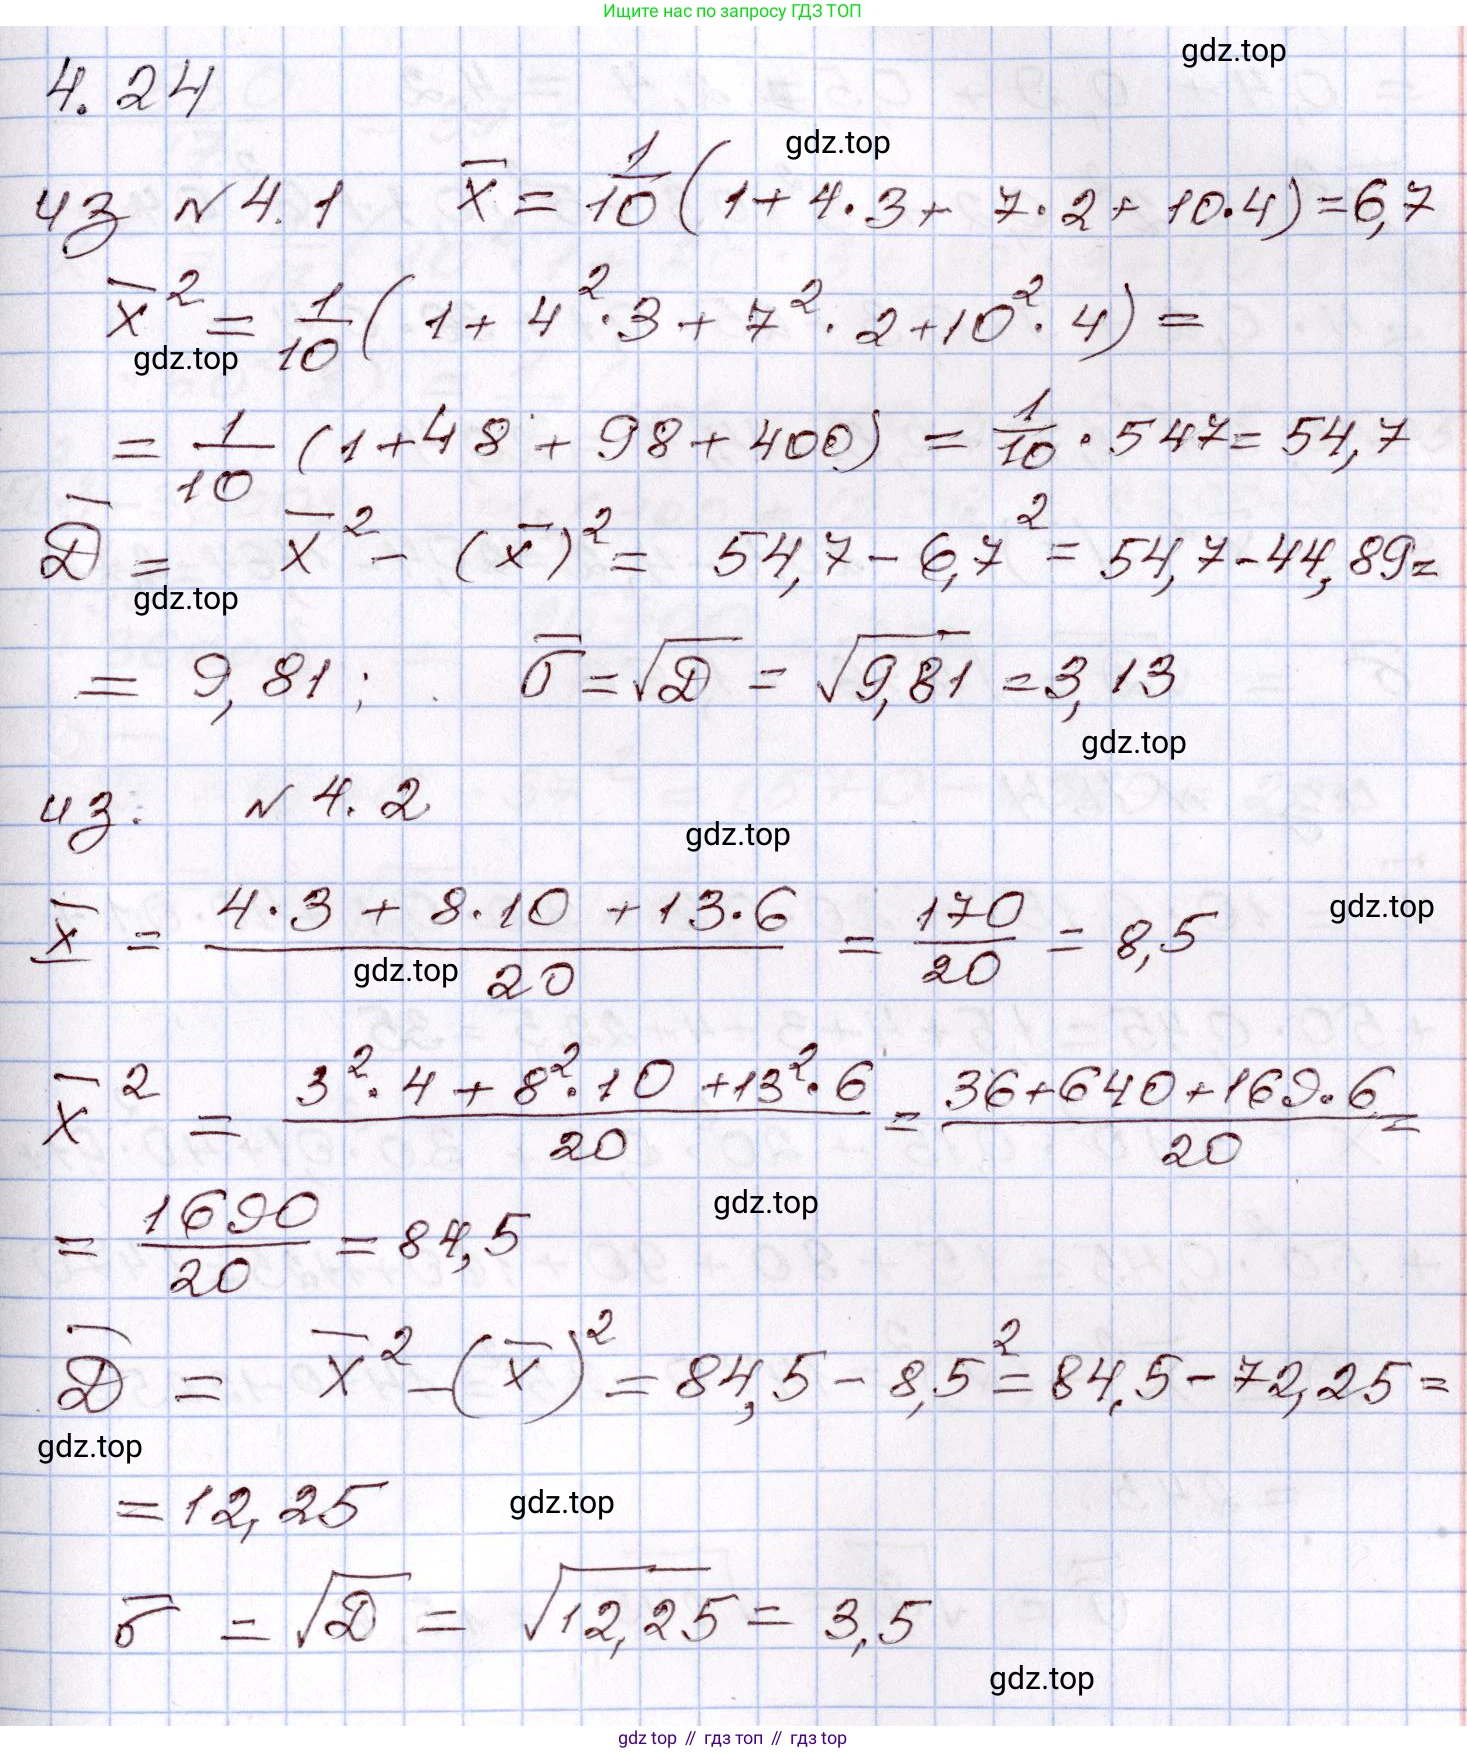 Ищите нас по запросу ГДЗ ТОП
gdz.top
4.24
gdz.top
из №4.1 x̅ = 1/10 (1+4·3+7·2+10·4)=6,7
x̅² = 1/10 (1+4²·3+7²·2+10²·4)=
gdz.top
= 1/10 (1+48+98+400) = 1/10 · 547 = 54,7
D̅ = x̅² - (x̅)² = 54,7 - 6,7² = 54,7 - 44,89 =
gdz.top
= 9,81; σ̅ = √D = √9,81 = 3,13
gdz.top
из: №4.2
gdz.top
x̅ = (4·3 + 8·10 + 13·6)/20 = 170/20 = 8,5
gdz.top
gdz.top
x̅² = (3²·4 + 8²·10 + 13²·6)/20 = (36+640+169·6)/20 =
gdz.top
= 1690/20 = 84,5
D̅ = x̅² - (x̅)² = 84,5 - 8,5² = 84,5 - 72,25 =
gdz.top
= 12,25
gdz.top
σ̅ = √D = √12,25 = 3,5
gdz.top
gdz top // гдз топ // гдз top